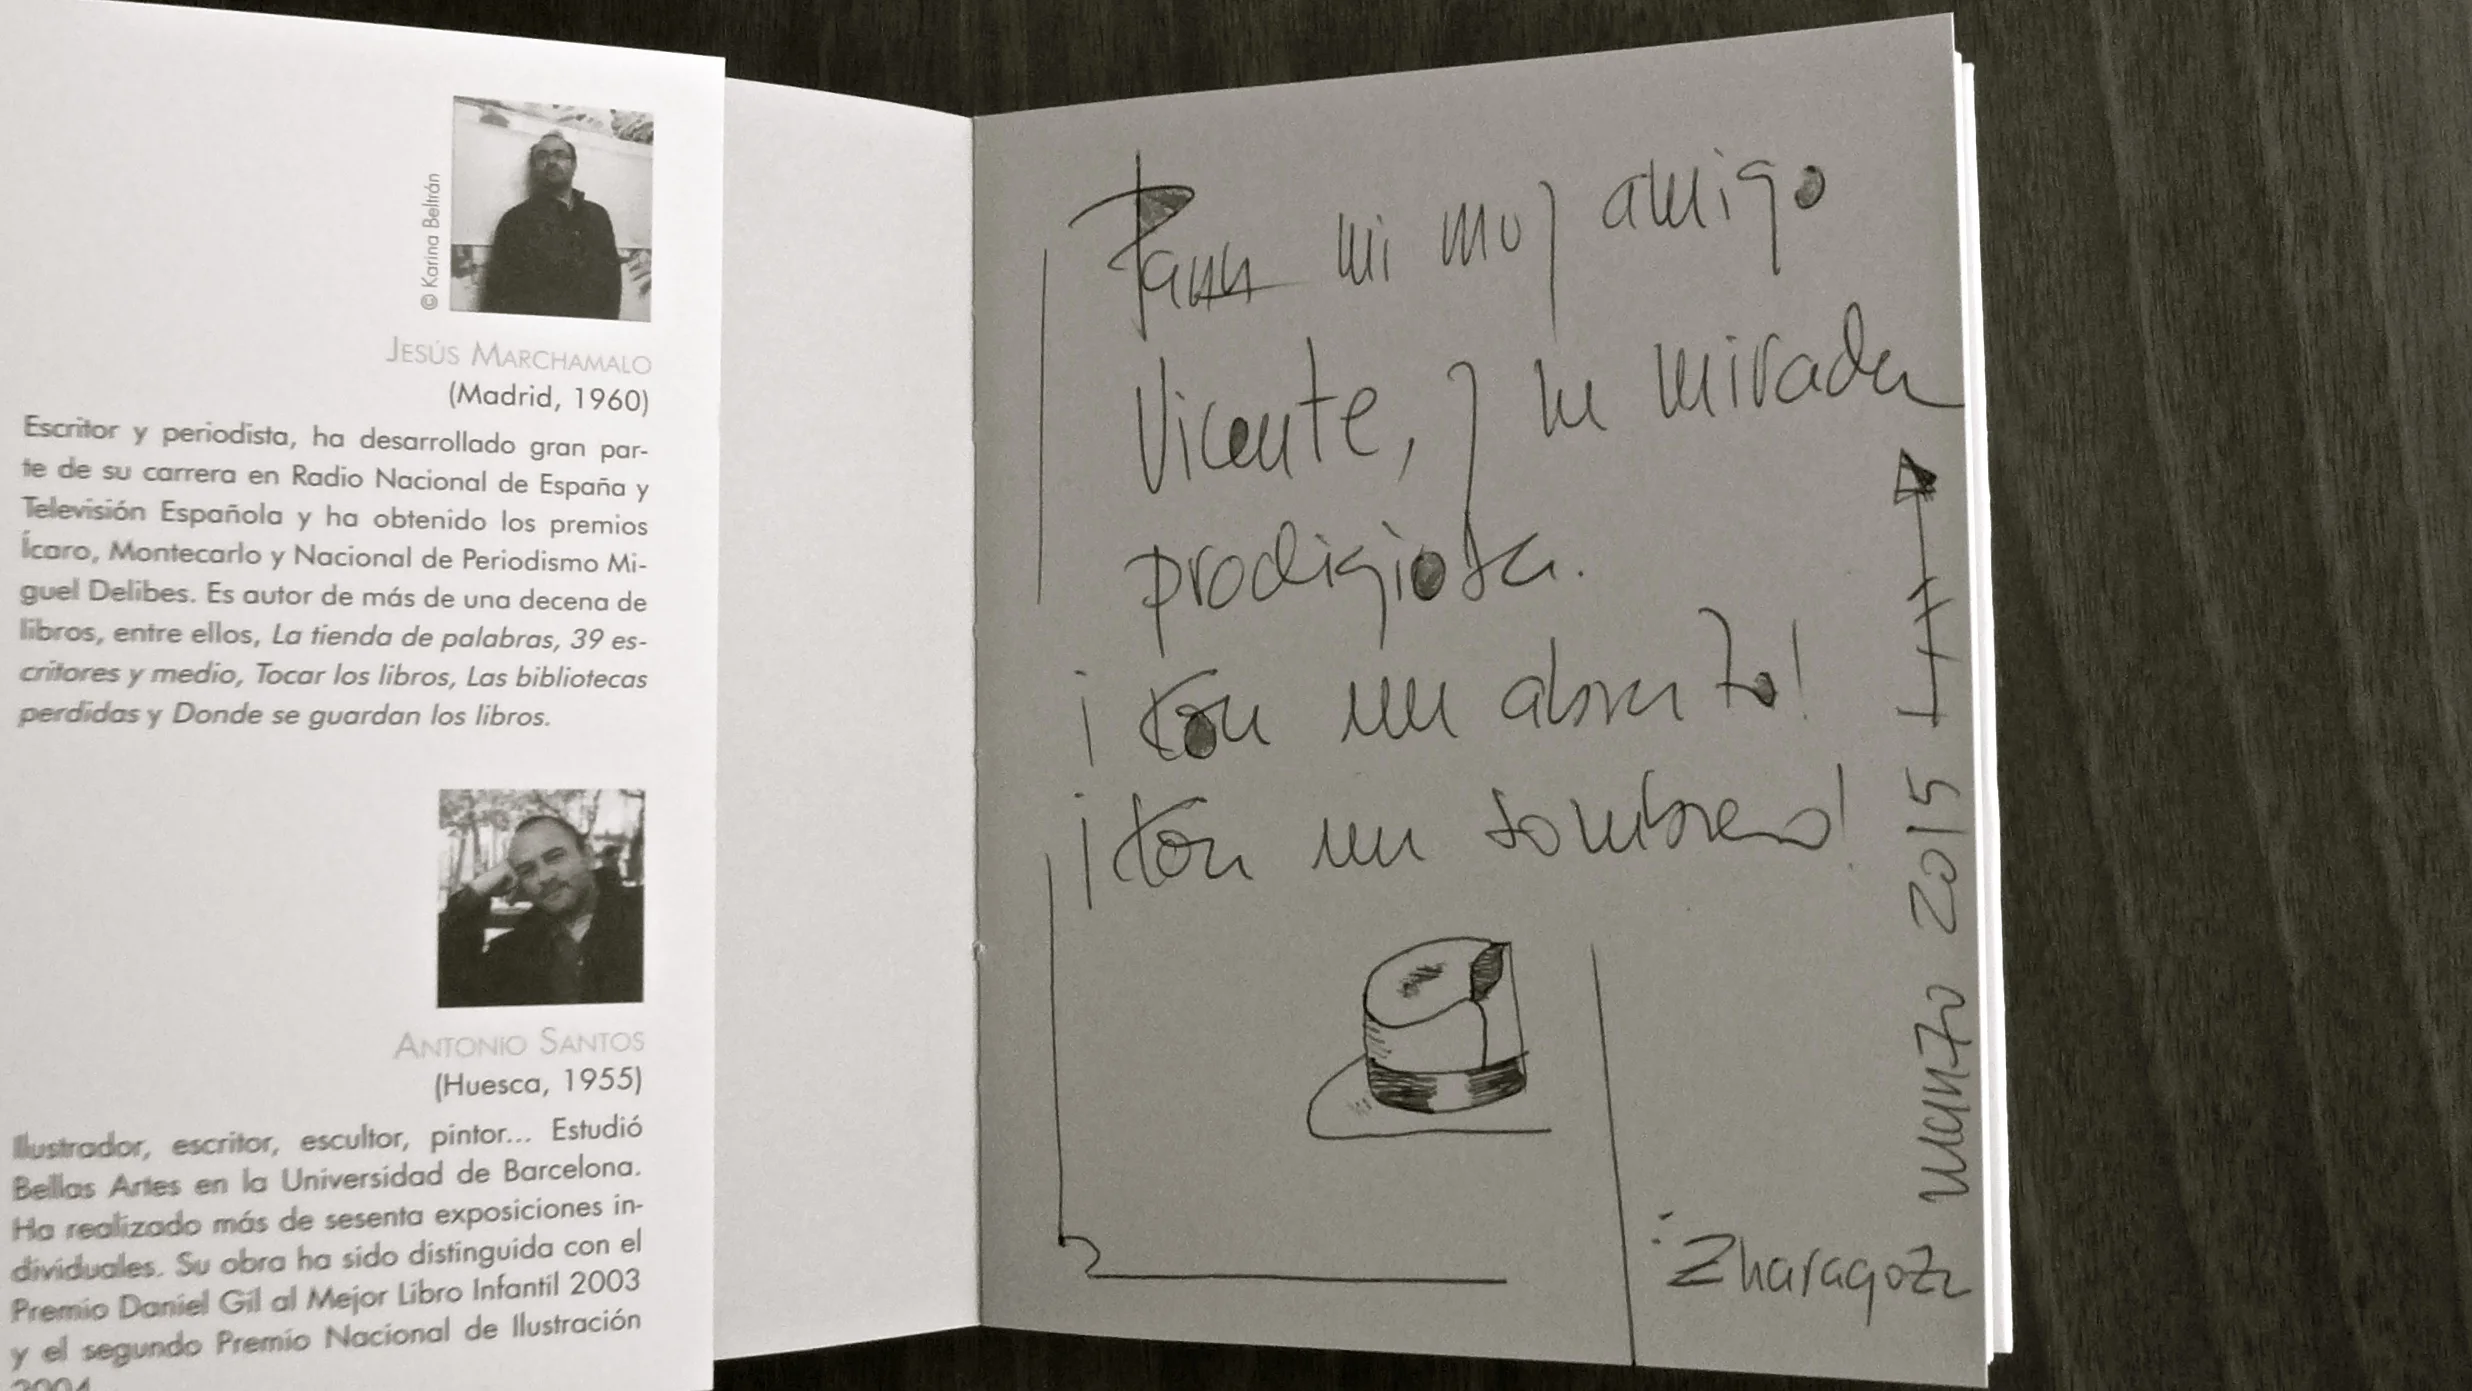 © Karina Beltrán
JESÚS MARCHAMALO
(Madrid, 1960)
Escritor y periodista, ha desarrollado gran par-
te de su carrera en Radio Nacional de España y
Televisión Española y ha obtenido los premios
Ícaro, Montecarlo y Nacional de Periodismo Mi-
guel Delibes. Es autor de más de una decena de
libros, entre ellos, La tienda de palabras, 39 es-
critores y medio, Tocar los libros, Las bibliotecas
perdidas y Donde se guardan los libros.
ANTONIO SANTOS
(Huesca, 1955)
Ilustrador, escritor, escultor, pintor... Estudió
Bellas Artes en la Universidad de Barcelona.
Ha realizado más de sesenta exposiciones in-
dividuales. Su obra ha sido distinguida con el
Premio Daniel Gil al Mejor Libro Infantil 2003
y el segundo Premio Nacional de Ilustración
2004
Para mi muy amigo
Vicente, y su mirada
prodigiosa.
¡Con un abrazo!
¡Con un sombrero!
Zharagoza
marzo 2015